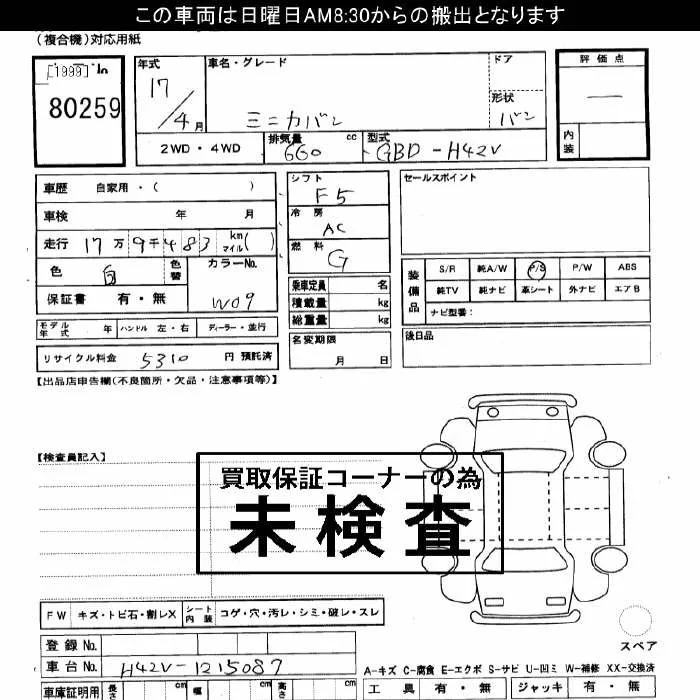 この車両は日曜日AM8:30からの搬出となります
(複合機)対応用紙
[1999]
80259
年式 17/4月
車名・グレード ミニカバン
ドア
形状 バン
評価点 —
内装
2WD・4WD
排気量 660 cc
型式 GBD-H42V
車歴 自家用・( )
車検 年 月
走行 17万9千483 km マイル( )
色 白 色替
カラーNo. W09
保証書 有・無
モデル年式 年 ハンドル 左・右 ディーラー・並行
リサイクル料金 5310 円 預託済
シフト F5
冷房 AC
燃料 G
乗車定員 名
積載量 kg
総重量 kg
名変期限 月 日
セールスポイント
装備品
S/R 純A/W P/S P/W ABS
純TV 純ナビ 革シート 外ナビ エアB
ナビ型番:
後日品
【出品店申告欄(不良箇所・欠品・注意事項等)】
【検査員記入】
買取保証コーナーの為
未検査
FW キズ・トビ石・割レX シート内装 コゲ・穴・汚レ・シミ・破レ・スレ
登録No.
車台No. H42V-1215087
車庫証明用 長さ cm 幅 cm 高さ cm
スペア
A-キズ C-腐食 E-エクボ S-サビ U-凹ミ W-補修 XX-交換済
工具 有・無 ジャッキ 有・無